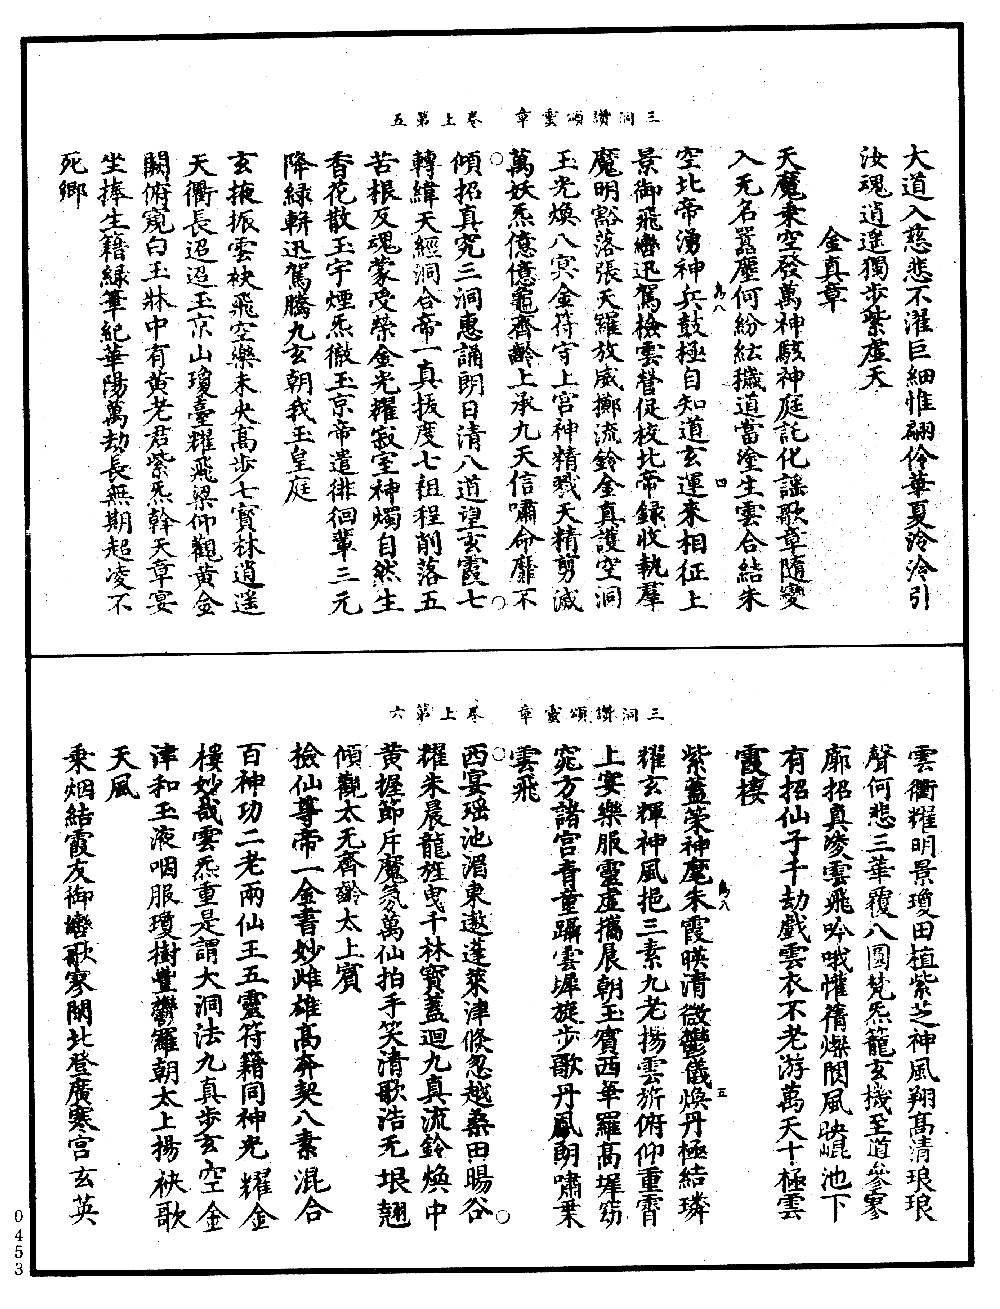 三洞讚頌靈章　卷上第五
大道入慈悲不濯巨細惟翩伶華夏泠泠引
汝魂逍遥獨步紫虛天
金真章
天魔乘空發萬神駭神庭託化謡歌章隨變
入无名囂塵何紛紜穢道當塗生雲合結朱
鳥八　四
空北帝湧神兵鼓極自知道玄運來相征上
景御飛轡迅駕檢雲營促校北帝録收執羣
魔明豁落張天羅放威擲流鈴金真護空洞
玉光煥八冥金符守上宮神精戮天精剪滅
萬妖炁億億龜齊齡上承九天信嘯命靡不
傾招真究三洞惠誦朗日清八道望玄霞七
轉緯天經洞合帝一真拔度七祖程削落五
苦根反魂蒙受榮金光耀寂室神燭自然生
香花散玉宇煙炁徹玉京帝遣徘徊輦三元
降緑輧迅駕騰九玄朝我玉皇庭
玄掖振雲袂飛空樂未央高步七寶林逍遥
天衢長迢迢玉京山瓊臺耀飛梁仰觀黄金
闕俯窺白玉牀中有黄老君紫炁幹天章宴
坐捧生籍緑筆紀華陽萬劫長無期超凌不
死鄉
三洞讚頌靈章　卷上第六
雲衢耀明景瓊田植紫芝神風翔髙清琅琅
聲何悲三華覆八圓梵炁籠玄機至道參寥
廓招真凌雲飛吟哦懽蒨燦閬風映崐池下
有招仙子千劫戲雲衣不老游萬天十極雲
霞棲
紫蓋榮神麾朱霞暎清微鬱儀煥丹極結璘
鳥八　五
耀玄輝神風挹三素九老揚雲旂俯仰重霄
上宴樂服靈虛攜晨朝玉賓西華羅高墀窈
窕方諸宮青童躡雲墀旋步歌丹鳳朗嘯乗
雲飛
西宴瑶池湄東遨蓬萊津倐忽越桑田暘谷
耀朱晨龍旌曳千林寳蓋迴九真流鈴煥中
黄握節斥魔氛萬仙拍手笑清歌浩无垠翹
傾觀太无齊齡太上賓
檢仙尊帝一金書妙雌雄高奔契八素混合
百神功二老兩仙王五靈符籍同神光耀金
樓妙哉雲炁重是謂大洞法九真步玄空金
津和玉液咽服瓊樹豐鬱羅朝太上揚袂歌
天風
乗烟結霞友御轡歌寥閑北登廣寒宫玄英
0453